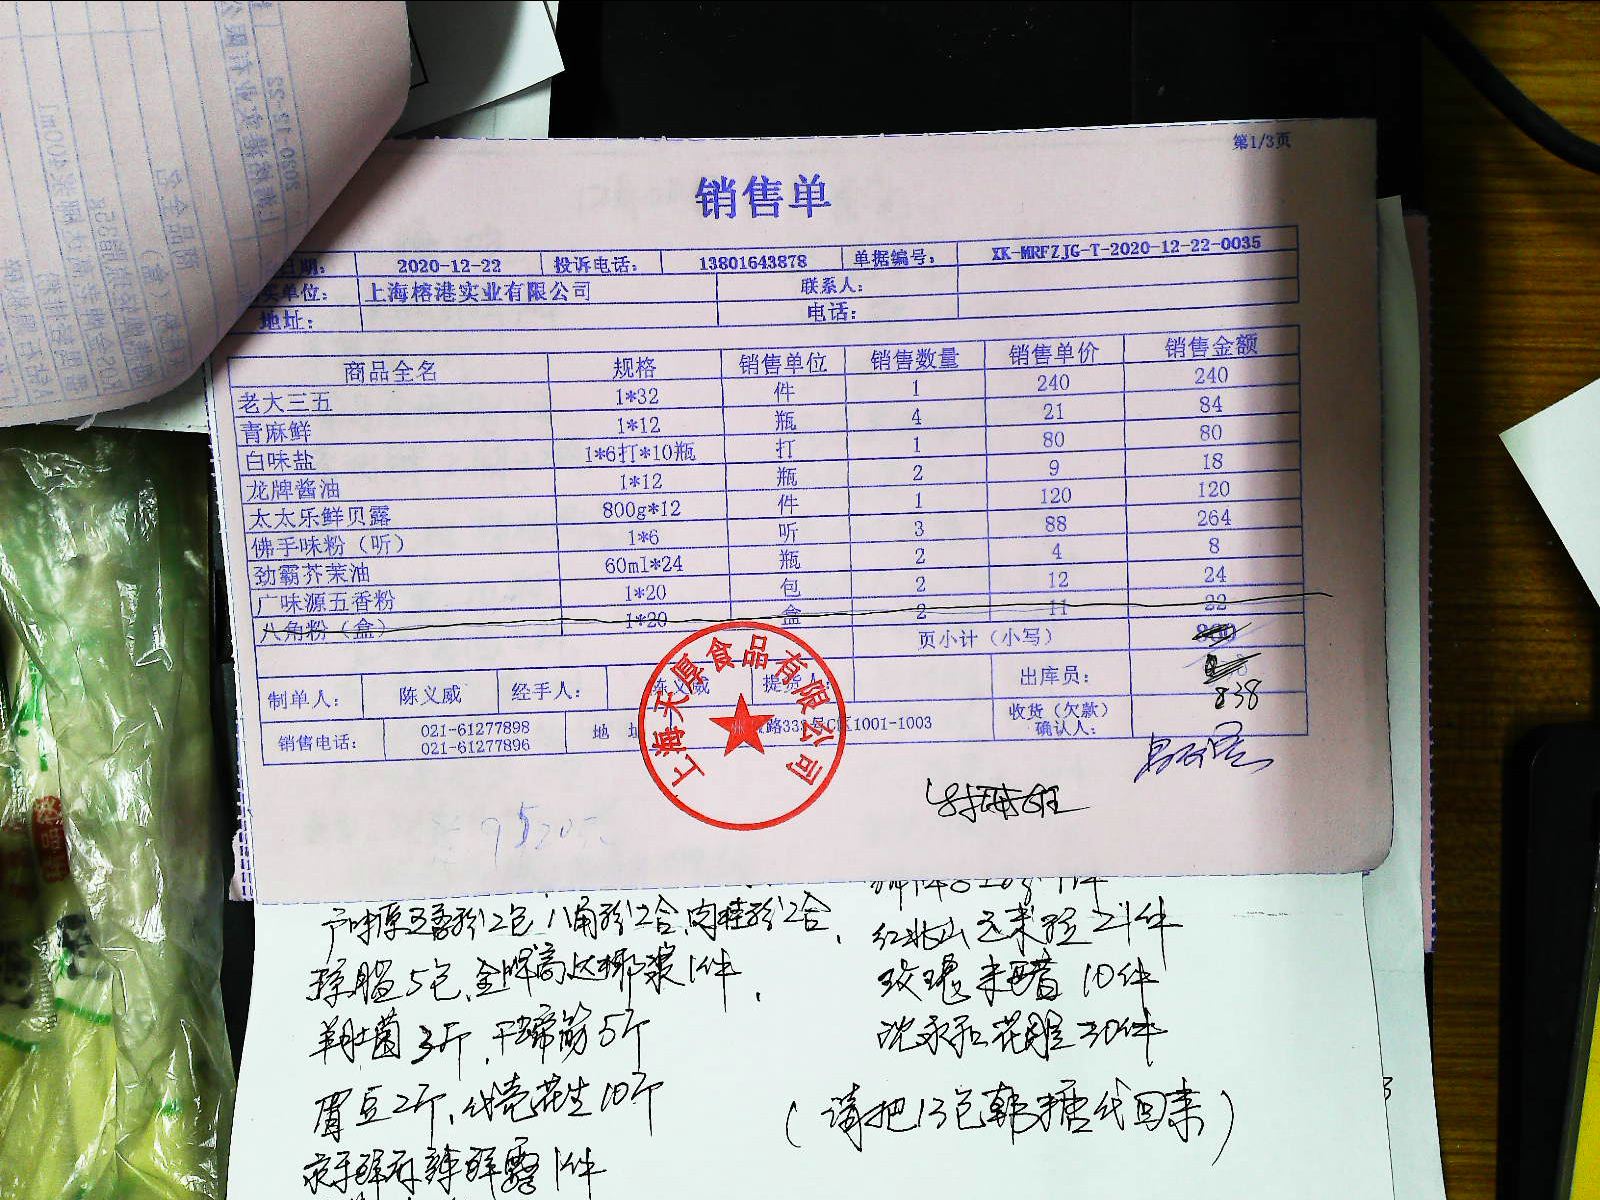 第1/3页
销售单
日期： 2020-12-22 投诉电话： 13801643878 单据编号： XK-MRFZJG-T-2020-12-22-0035
买单位： 上海榕港实业有限公司 联系人：
地址： 电话：
商品全名 规格 销售单位 销售数量 销售单价 销售金额
老大三五 1*32 件 1 240 240
青麻鲜 1*12 瓶 4 21 84
白味盐 1*6打*10瓶 打 1 80 80
龙牌酱油 1*12 瓶 2 9 18
太太乐鲜贝露 800g*12 件 1 120 120
佛手味粉（听） 1*6 听 3 88 264
劲霸芥茉油 60ml*24 瓶 2 4 8
广味源五香粉 1*20 包 2 12 24
八角粉（盒） 1*20 盒 2 11 22
页小计（小写）
838
制单人： 陈义威 经手人： 陈义威 提货人： 出库员：
销售电话： 021-61277898 021-61277896 地 路333号C区1001-1003 收货（欠款）确认人：
上海天厚食品有限公司
广味源五香粉2包 八角粉2合,肉桂粉2合,
琼脂5包、金牌高达椰浆1件,
3斤, 干蹄筋5斤
眉豆2斤, 花生10斤
鲜露1件
玫瑰米醋 10件
沈永和花雕30件
(请把13包韩糖代回来)